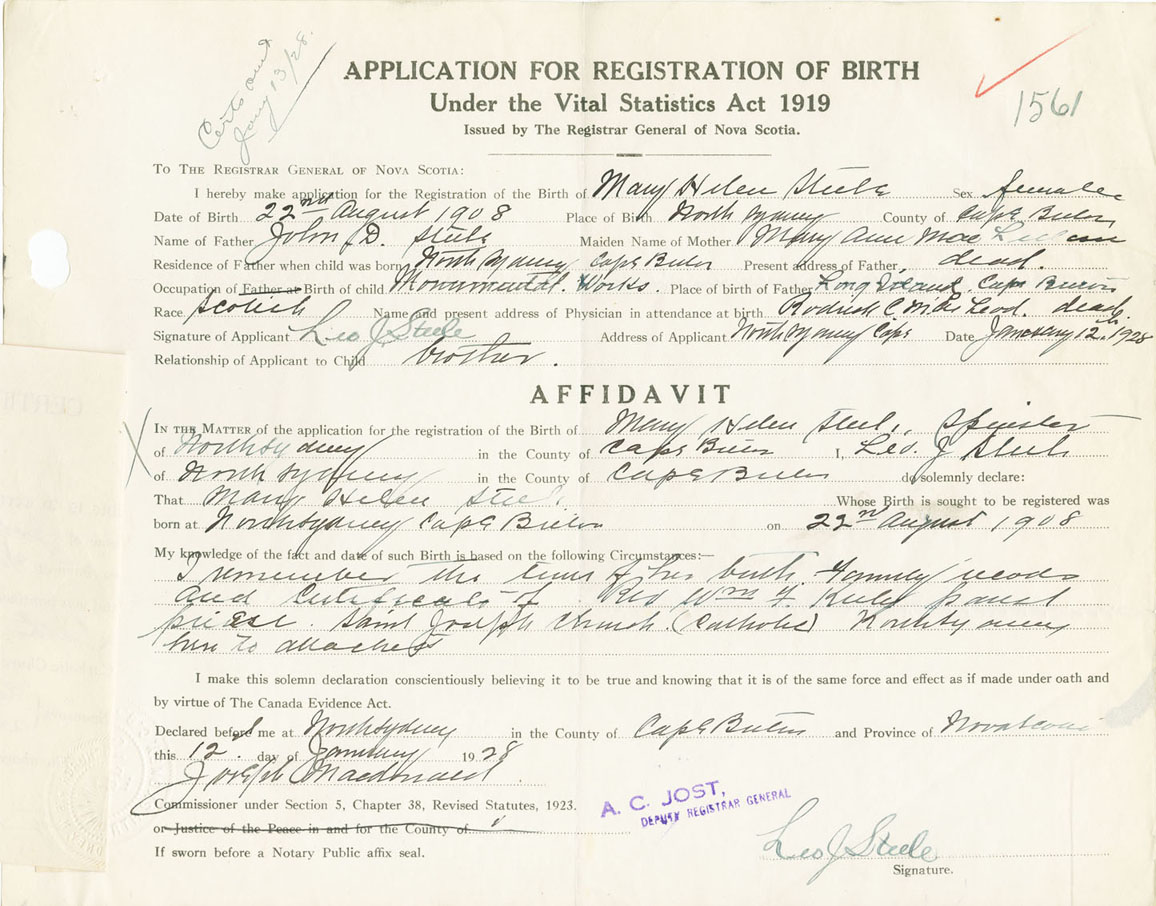 Certs out
Jany 13/28.
1561
APPLICATION FOR REGISTRATION OF BIRTH
Under the Vital Statistics Act 1919
Issued by The Registrar General of Nova Scotia.
To The Registrar General of Nova Scotia:
I hereby make application for the Registration of the Birth of Mary Helen Steele Sex female
Date of Birth 22nd August 1908 Place of Birth North Sydney County of Cape Breton
Name of Father John D. Steele Maiden Name of Mother Mary Ann Mac
Residence of Father when child was born North Sydney Cape Breton Present address of Father, dead.
Occupation of Father at Birth of child Monumental Works. Place of birth of Father Long Island. Cape Breton
Race Scotish Name and present address of Physician in attendance at birth Rodrick C McLeod. dead.
Signature of Applicant Leo J Steele Address of Applicant North Sydney Cape Date January 12th 1928
Relationship of Applicant to Child brother.
AFFIDAVIT
In the Matter of the application for the registration of the Birth of Mary Helen Steele, Spinster
of North Sydney in the County of Cape Breton I, Leo. J Steele
of North Sydney in the County of Cape Breton do solemnly declare:
That Mary Helen Steele. Whose Birth is sought to be registered was
born at North Sydney Cape Breton on 22nd August 1908
My knowledge of the fact and date of such Birth is based on the following Circumstances:—
I remember the time of her birth. Family records
and Certificate of Rev Wm F. Kiely parish
priest. Saint Joseph Church. (Catholic) North Sydney
hereto attached
I make this solemn declaration conscientiously believing it to be true and knowing that it is of the same force and effect as if made under oath and
by virtue of The Canada Evidence Act.
Declared before me at North Sydney in the County of Cape Breton and Province of Nova Scotia
this 12. day of January 1928
Joseph Macdonald
Commissioner under Section 5, Chapter 38, Revised Statutes, 1923.
or Justice of the Peace in and for the County of
If sworn before a Notary Public affix seal.
A. C. JOST,
DEPUTY REGISTRAR GENERAL
Leo J Steele
Signature.